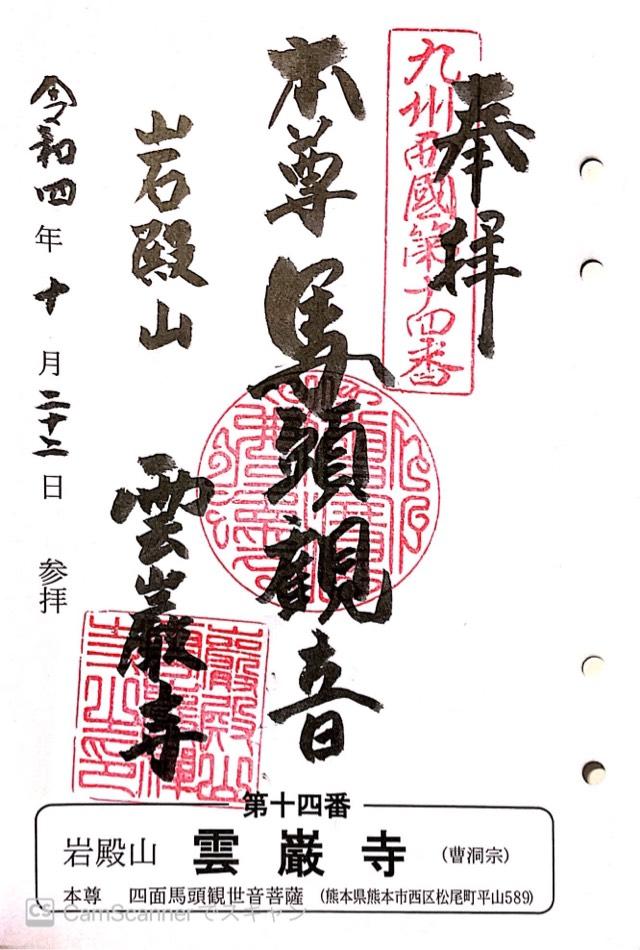 奉拝
九州西國第十四番
本尊 馬頭観音
岩殿山
雲巌寺
令和四年十月二十二日 参拝
第十四番
岩殿山 雲巌寺 (曹洞宗)
本尊 四面馬頭観世音菩薩 (熊本県熊本市西区松尾町平山589)
CS CamScannerでスキャン